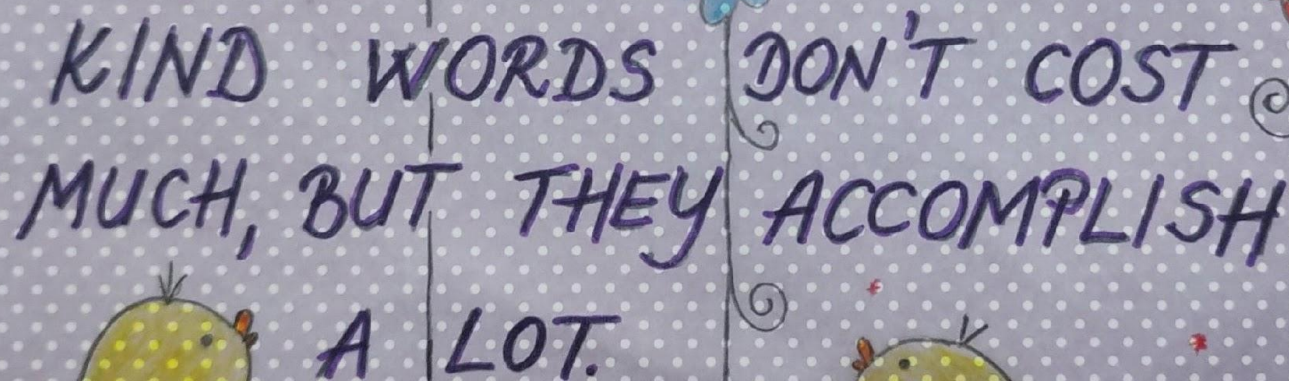 KIND WORDS DON'T COST
MUCH, BUT THEY ACCOMPLISH
A LOT.